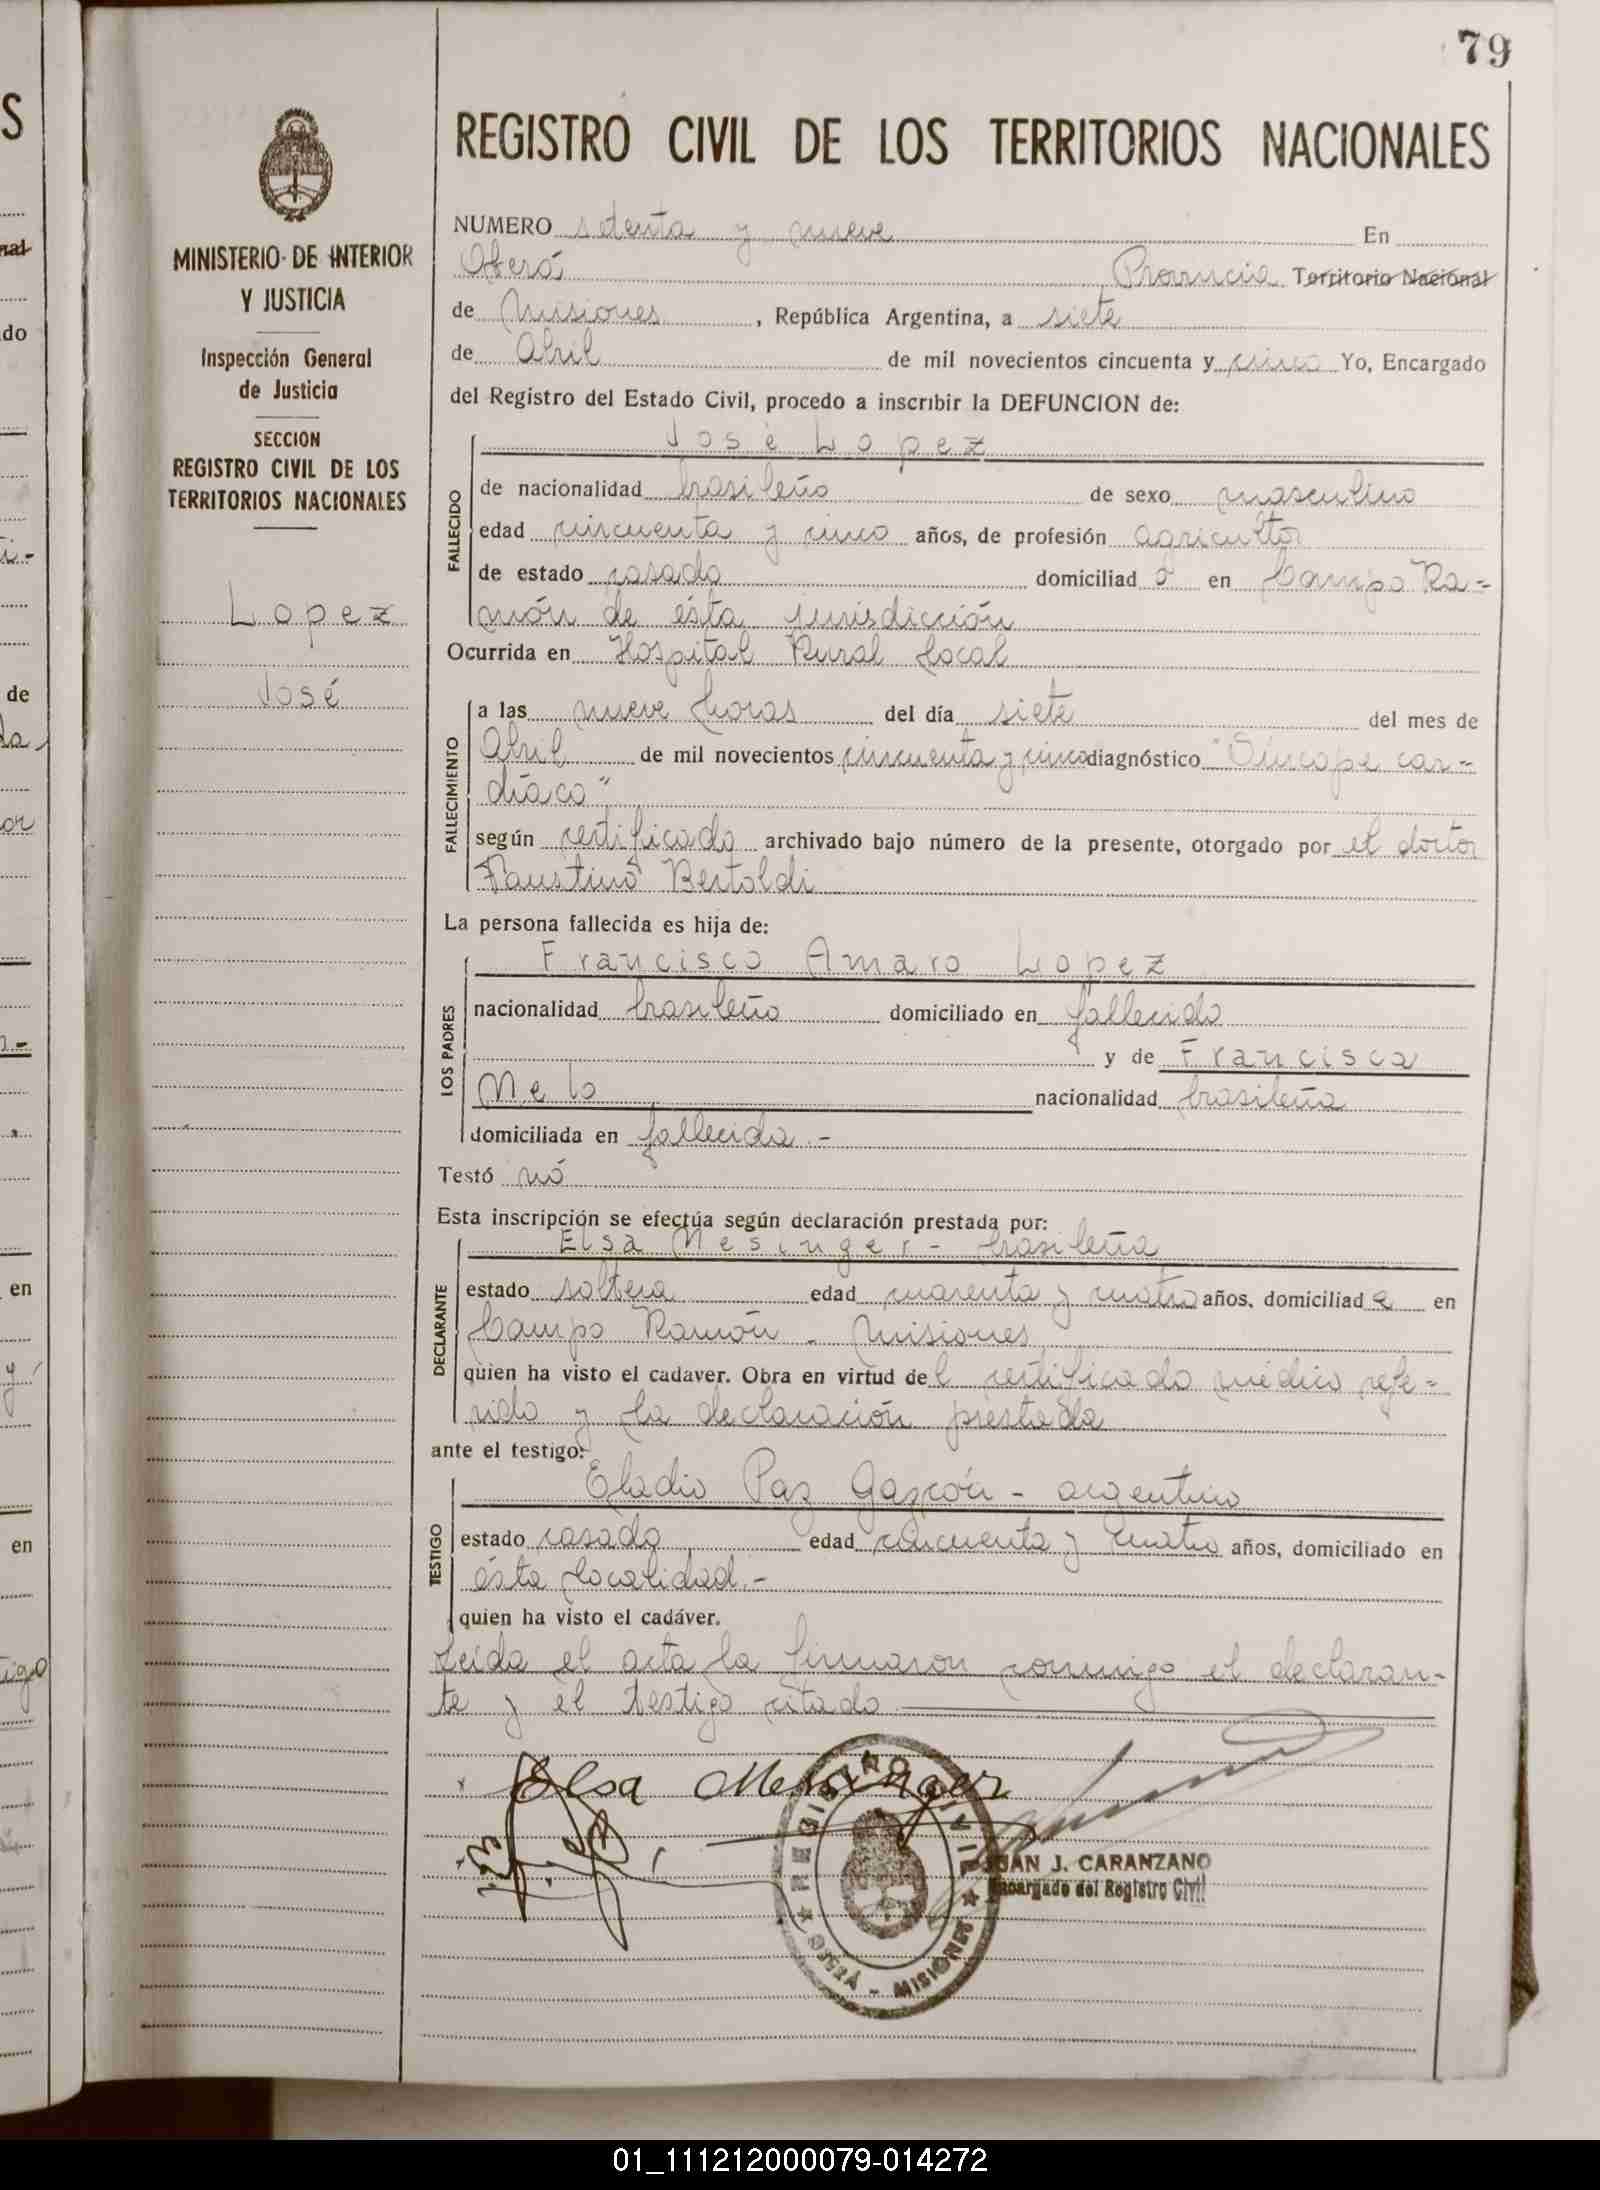 79
REGISTRO CIVIL DE LOS TERRITORIOS NACIONALES
MINISTERIO DE INTERIOR
Y JUSTICIA
Inspección General
de Justicia
SECCION
REGISTRO CIVIL DE LOS
TERRITORIOS NACIONALES
Lopez
José
NUMERO setenta y nueve En
Oberá Provincia Territorio Nacional
de Misiones, República Argentina, a siete
de Abril de mil novecientos cincuenta y cinco Yo, Encargado
del Registro del Estado Civil, procedo a inscribir la DEFUNCION de:
FALLECIDO
José Lopez
de nacionalidad brasileño de sexo masculino
edad cincuenta y cinco años, de profesión agricultor
de estado casado domiciliad o en Campo Ra=
món de ésta jurisdicción
Ocurrida en Hospital Rural local
FALLECIMIENTO
a las nueve horas del día siete del mes de
Abril de mil novecientos cincuenta y cinco diagnóstico "Síncope car=
díaco"
según certificado archivado bajo número de la presente, otorgado por el doctor
Faustino Bertoldi
La persona fallecida es hija de:
LOS PADRES
Francisco Amaro Lopez
nacionalidad brasileño domiciliado en fallecido
y de Francisca
Melo nacionalidad brasileña
domiciliada en fallecida.-
Testó nó
Esta inscripción se efectúa según declaración prestada por:
DECLARANTE
Elsa Mesinger - brasileña
estado soltera edad cuarenta y cuatro años, domiciliad a en
Campo Ramón - Misiones
quien ha visto el cadaver. Obra en virtud del certificado médico refe=
rido y la declaración prestada
ante el testigo:
TESTIGO
Eladio Paz Gascón - argentino
estado casado edad cincuenta y cuatro años, domiciliado en
ésta localidad.-
quien ha visto el cadáver.
Leída el acta la firmaron conmigo el declaran-
te y el testigo citado
Elsa Messinger
REGISTRO CIVIL
MISIONES
JUAN J. CARANZANO
Encargado del Registro Civil
01_111212000079-014272